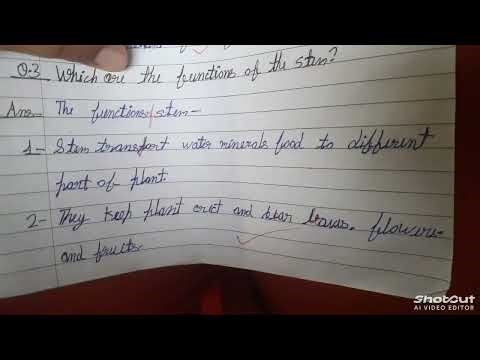 Q.3 Which are the functions of the stem?
Ans- The functions stem-
1- Stem transport water minerals food to different
part of plant.
2- They keep plant erect and bear leaves. flowers
and fruits
ShotCut
AI VIDEO EDITOR